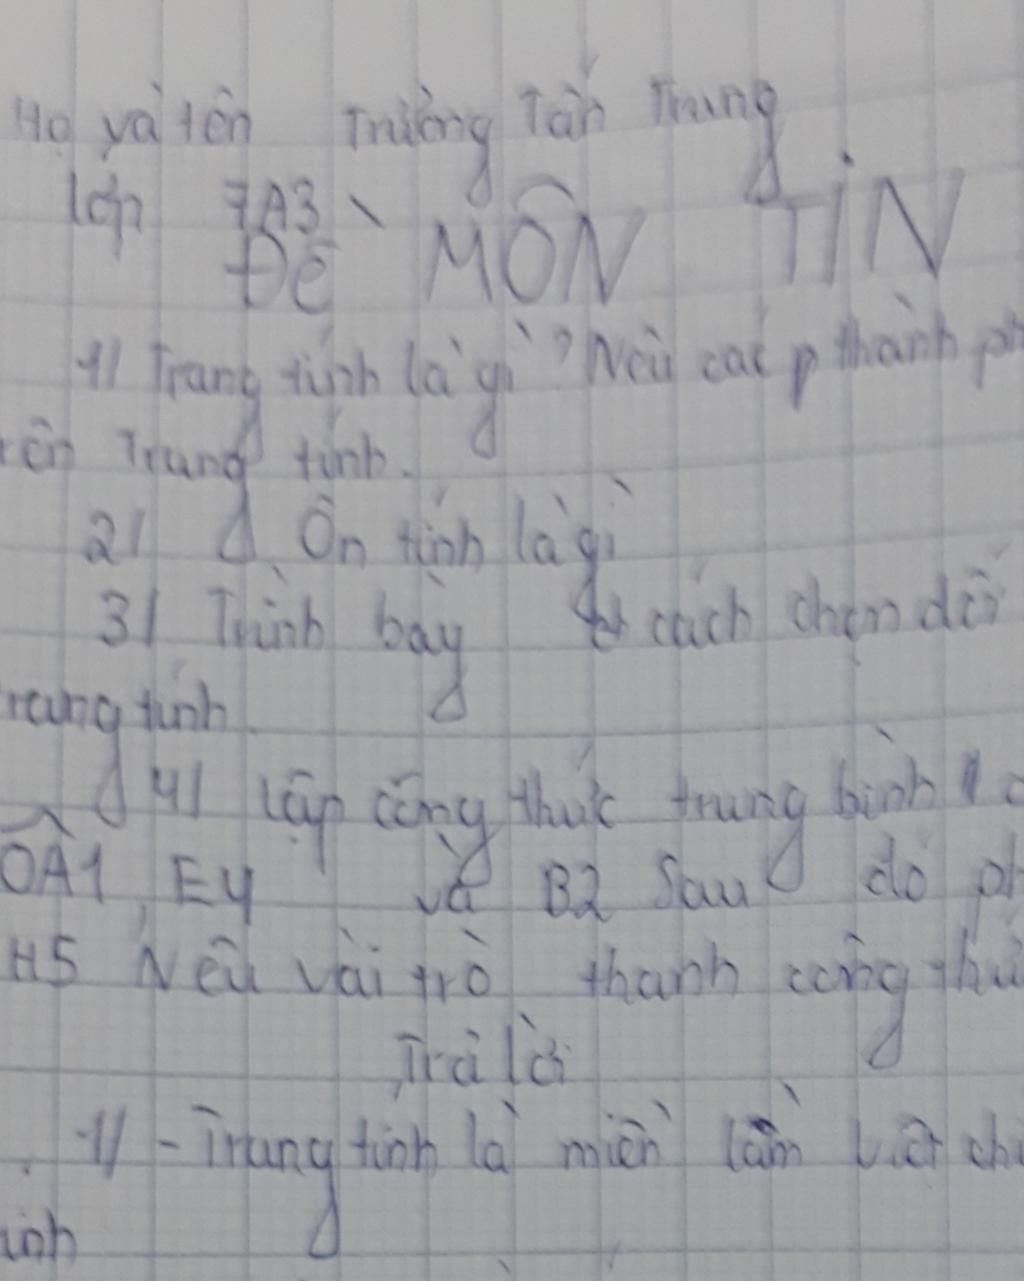 Họ và tên Trường Tấn Trung
lớp 7A3
Đề MÔN TIN
1/ Trang tính là gì? Nêu các p thành ph
rên Trang tính.
2/ Ôn tính là gì
3/ Trình bày cách chọn đối
rang tính
4/ Lập công thức trung bình
ÔA1, E4 và B2 Sau đó ph
H5 Nêu vài trò thanh công thứ
Trả lời
1/ - Trang tính là miền làm việc chí
inh